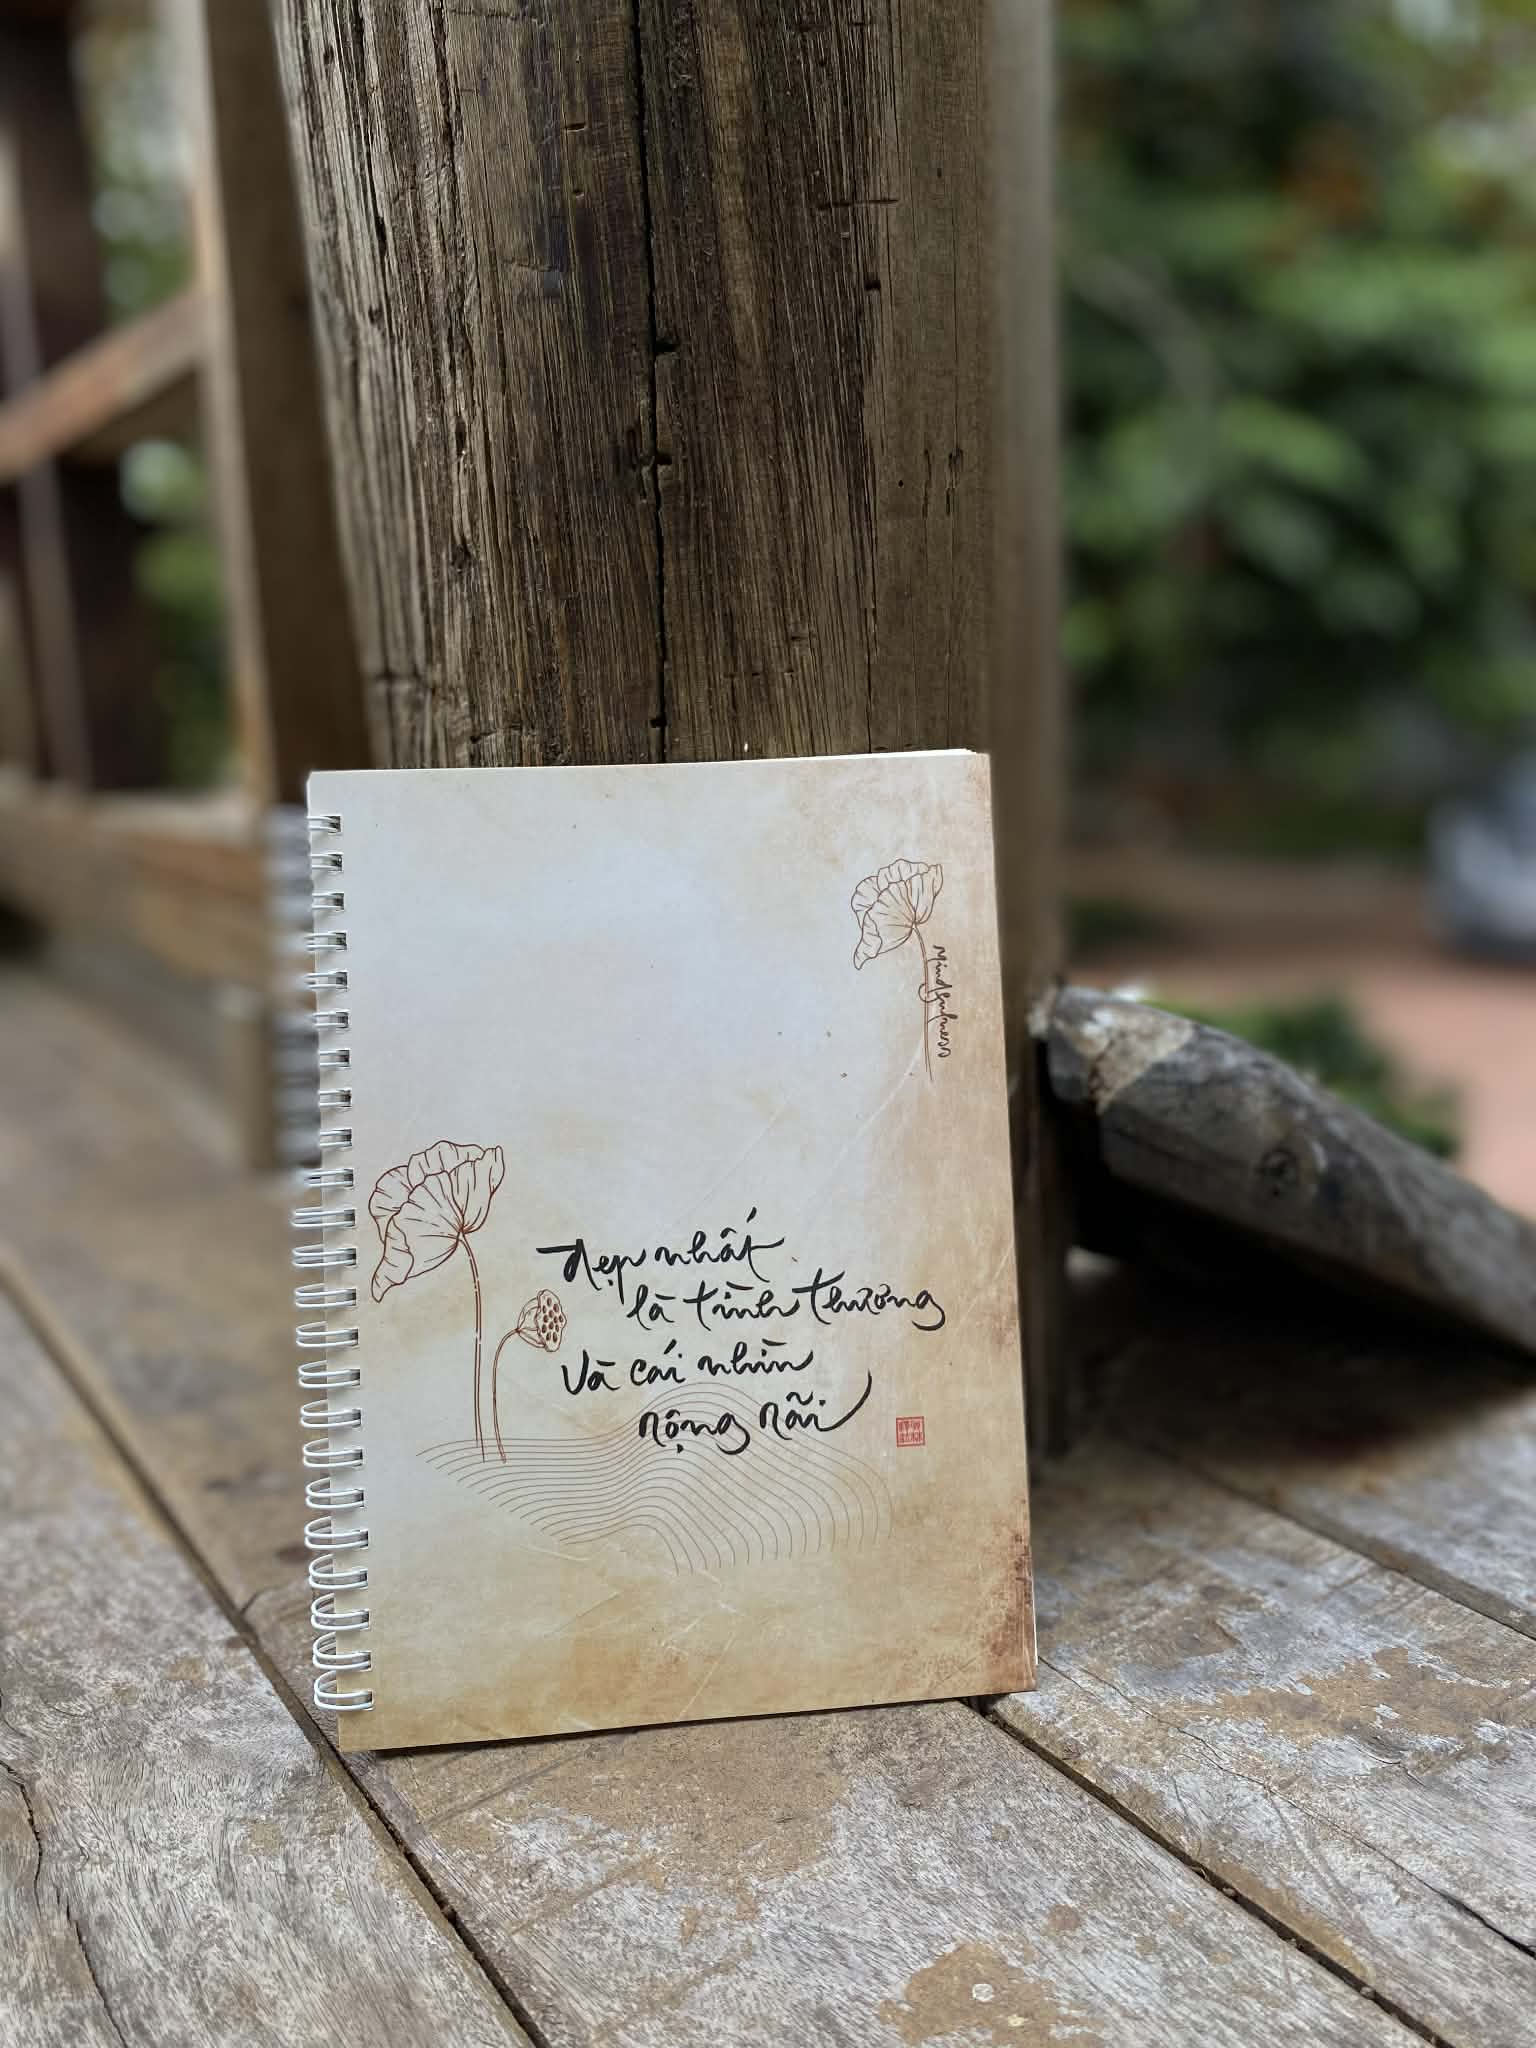 Mindfulness
Đẹp nhất
là tình thương
Và cái nhìn
rộng rãi